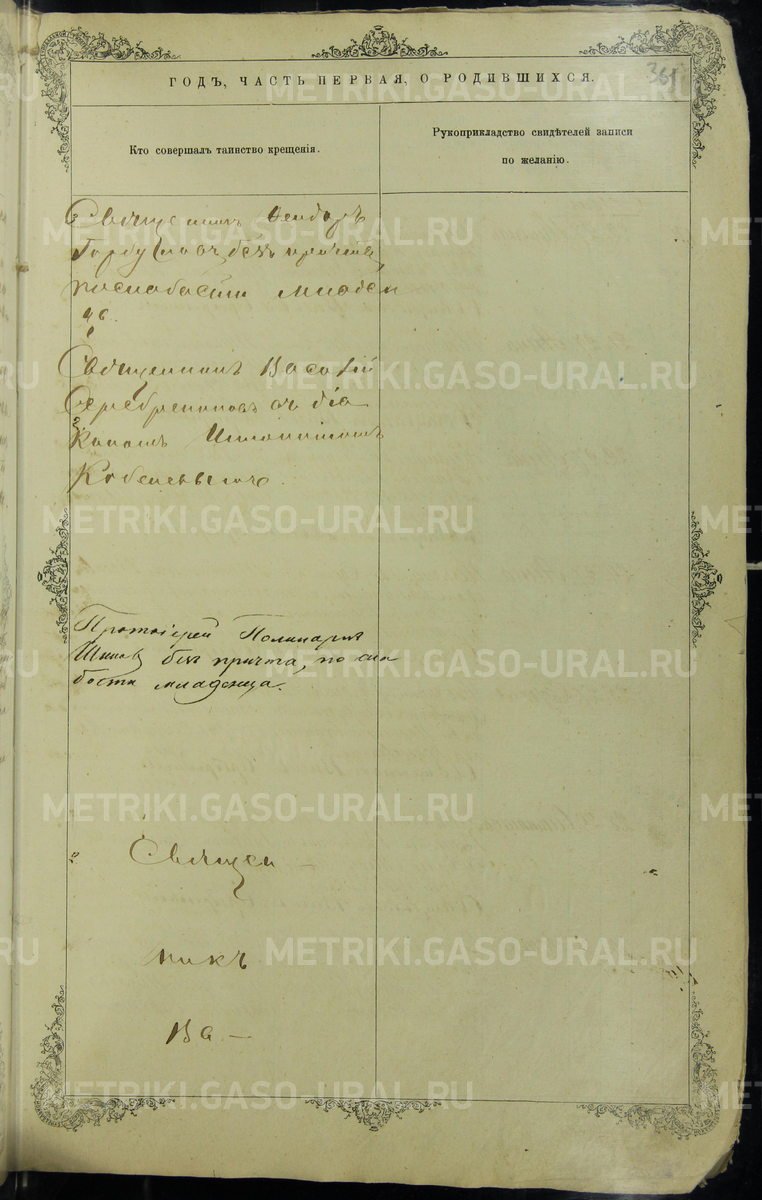 361
ГОДЪ, ЧАСТЬ ПЕРВАЯ, О РОДИВШИХСЯ.
Кто совершалъ таинство крещенія.
Рукоприкладство свидѣтелей записи
по желанію.
Священникъ Ѳеодоръ
безъ причта,
послабости младен
ца.
Священникъ Васілій
Серебренниковъ съ діа
кономъ
Протоіерей
Шишовъ без причта, по сла
бости младенца.
Священ-
никъ
Ва-
METRIKI.GASO-URAL.RU